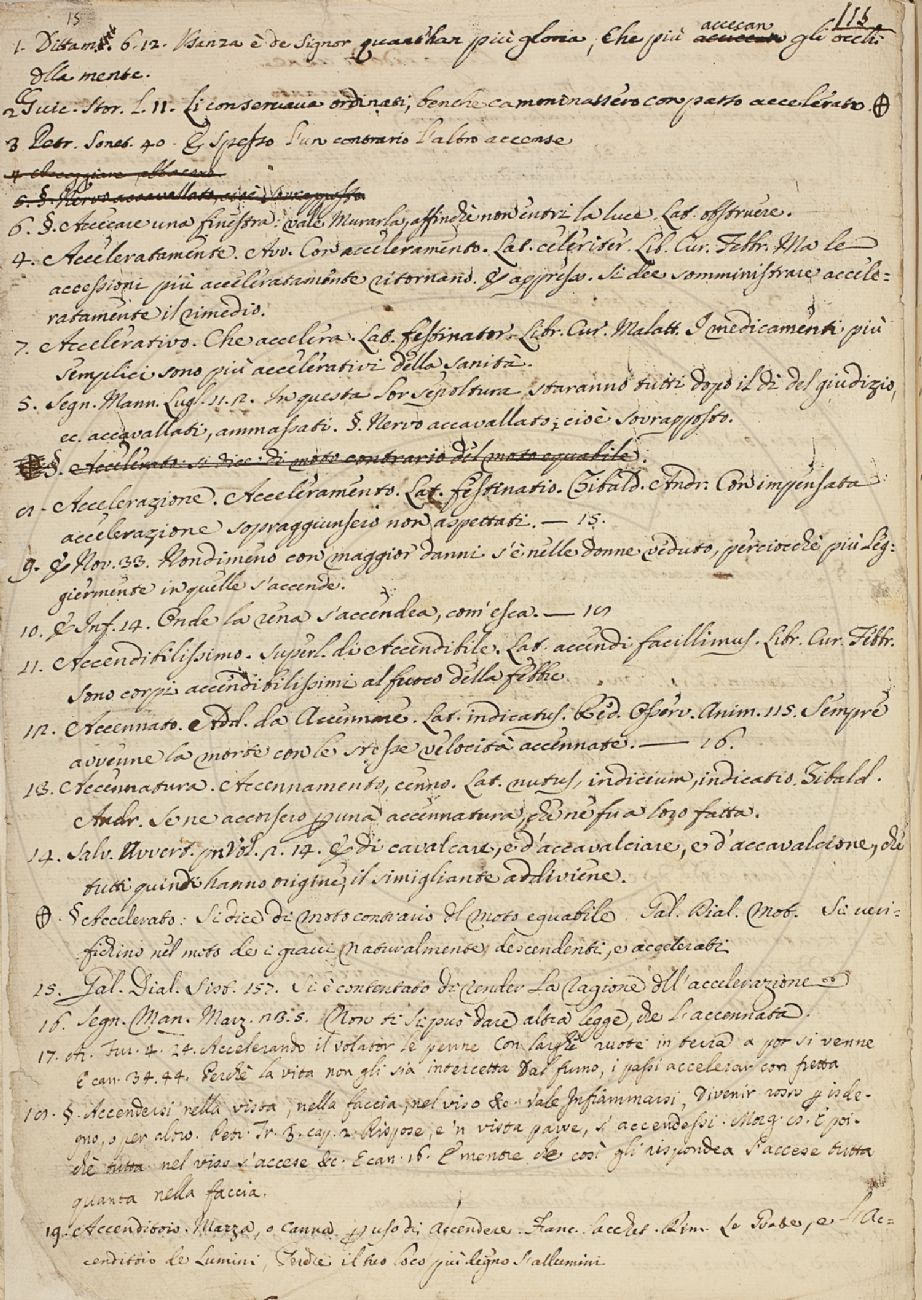 15
115
accecan
1. Dittam. 6. 12. Usanza è de Signor, quant'han più gloria, Che più accecan gli occhi
della mente.
2 Guic. Stor. L. 11. Li conservava ordinati, benche camminassero con passo accelerato. ⊕
3 Petr. Sonet. 40. E spesso l'un contrario l'altro accense
5. §. Nervo accavallato, cioè Sovrapposto
6. §. Accecare una finestra: vale Murarla, affinchè non entri la luce. Lat. obstruere.
4. Acceleratamente. Avv. Con acceleramento. Lat. celeriter. Lib. Cur. Febbr. Ma le
accessioni più acceleratamente ritornano. E appresso. Si dee somministrare accele=
ratamente il rimedio.
7. Accelerativo. Che accelera. Lat. festinator. Libr. Cur. Malatt. I medicamenti più
semplici sono più accelerativi della sanità.
5. Segn. Mann. Lugl. 11. 2. In questa lor sepoltura staranno tutti dopo il dì del giudizio,
ec. accavallati, ammassati. §. Nervo accavallato; cioè Sovrapposto.
⊕ §. Accelerato: si dice di moto contrario del moto equabile
8. Accelerazione. Acceleramento. Lat. festinatio. Tibald. Andr. Con impensata
accelerazione sopraggiunsero non aspettati. — 15.
9. E Nov. 33. Nondimeno con maggior danni s'è nelle donne veduto, perciocchè più leg=
giermente in quelle s'accende.
10. E Inf. 14. Onde la rena s'accendea, com'esca. — 18
11. Accendibilissimo. Superl. di Accendibile. Lat. accendi facillimus. Libr. Cur. Febbr.
Sono corpi accendibilissimi al fuoco della febbre
12. Accennato. Add. da Accennare. Lat. indicatus. Red. Osserv. Anim. 115. Sempre
avvenne la morte con le stesse velocità accennate. — 16.
13. Accennatura. Accennamento, cenno. Lat. nutus, indicium, indicatio. Tibald.
Andr. Se ne accorsero p una accennatura, che ne fu a loro fatta.
14. Salv. Avvert. 2. 14. E di cavalcare, e d'accavalciare, e d'accavalcione, che
tutti quindi hanno origine, il simigliante addiviene.
⊕. § Accelerato: Si dice di moto contrario del moto equabile. Gal. Dial. Mot. Si veri=
fichino nel moto de i gravi naturalmente descendenti, e accelerati
15. Gal. Dial. Sist. 157. Si è contentato di render la ragione dell'accelerazione
16. Segn. Man. Marz. 23. 5. Non ti si può dare altra legge, che l'accennata.
17. Ar. Fur. 4. 24. Accelerando il volator le penne Con larghe ruote in terra a por si venne
E can. 34. 44. Perchè la vita non gli sia intercetta Dal fumo, i passi accelerar con fretta
18. §. Accendersi nella vista, nella faccia, nel viso &c. vale Infiammarsi, Divenir rosso p isde-
gno, o per altro. Petr. Tr. F. cap. 2 Rispose, e 'n vista parve, s'accendessi. Morg. E poi-
chè tutta nel viso s'accese &c. E can. 16. E mentre che così gli rispondea S'accese tutta
quanta nella faccia.
19. Accenditoio. Mazza, o Canna p uso di Accendere. Franc. Sacchet. Rim. e l'Ac=
cenditoio de Lumini, il tuo loco più degno s'allumini